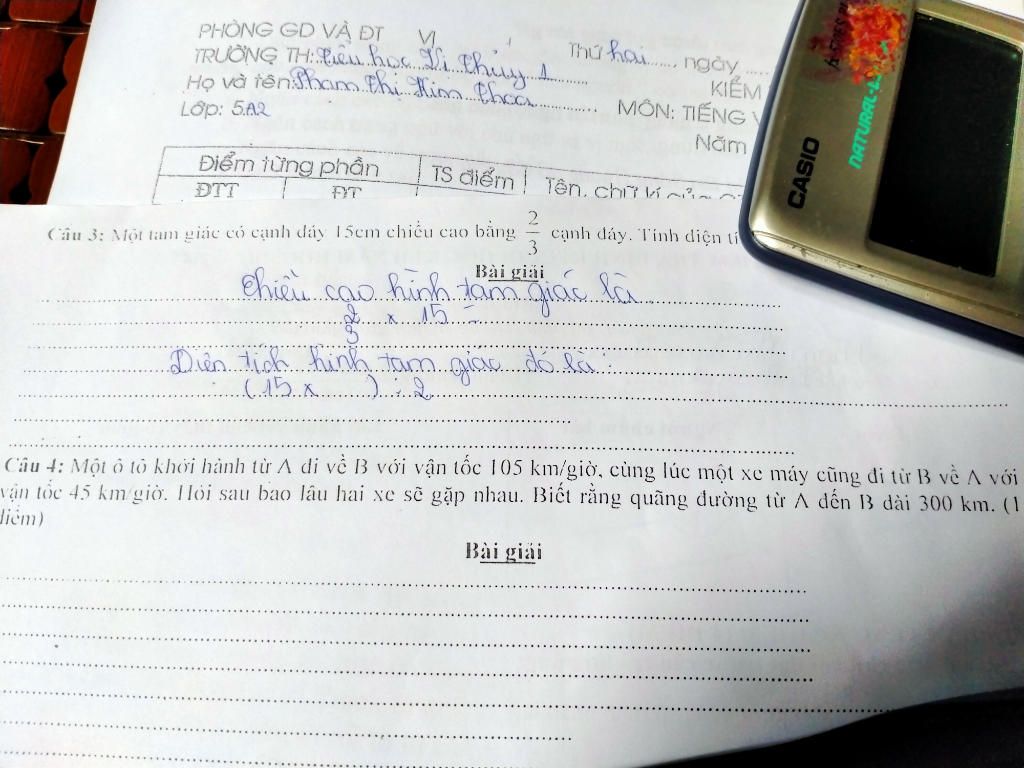 PHÒNG GD VÀ ĐT VỊ
TRƯỜNG TH: Tiểu học Vị Thủy 1
Thứ hai, ngày
Họ và tên: Phạm Thị Kim Thoa
KIỂM
Lớp: 5A2
MÔN: TIẾNG V
Năm
Điểm từng phần TS điểm Tên, chữ kí của
ĐTT ĐT
CASIO
NATURAL-
Câu 3: Một tam giác có cạnh đáy 15cm chiều cao bằng 2/3 cạnh đáy. Tính diện tí
Bài giải
Chiều cao hình tam giác là
2/3 x 15 =
Diện tích hình tam giác đó là:
(15 x ) : 2
Câu 4: Một ô tô khởi hành từ A đi về B với vận tốc 105 km/giờ, cùng lúc một xe máy cũng đi từ B về A với
vận tốc 45 km/giờ. Hỏi sau bao lâu hai xe sẽ gặp nhau. Biết rằng quãng đường từ A đến B dài 300 km. (1
điểm)
Bài giải